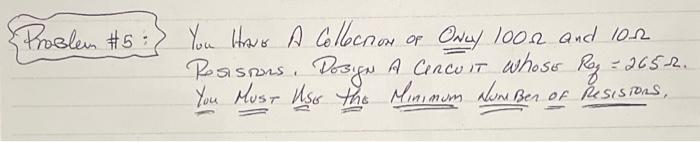 Problem #5: You Have A Collection of Only 100Ω and 10Ω
Resistors. Design A Circuit whose Req = 265Ω.
You Must Use the Minimum Number of Resistors.